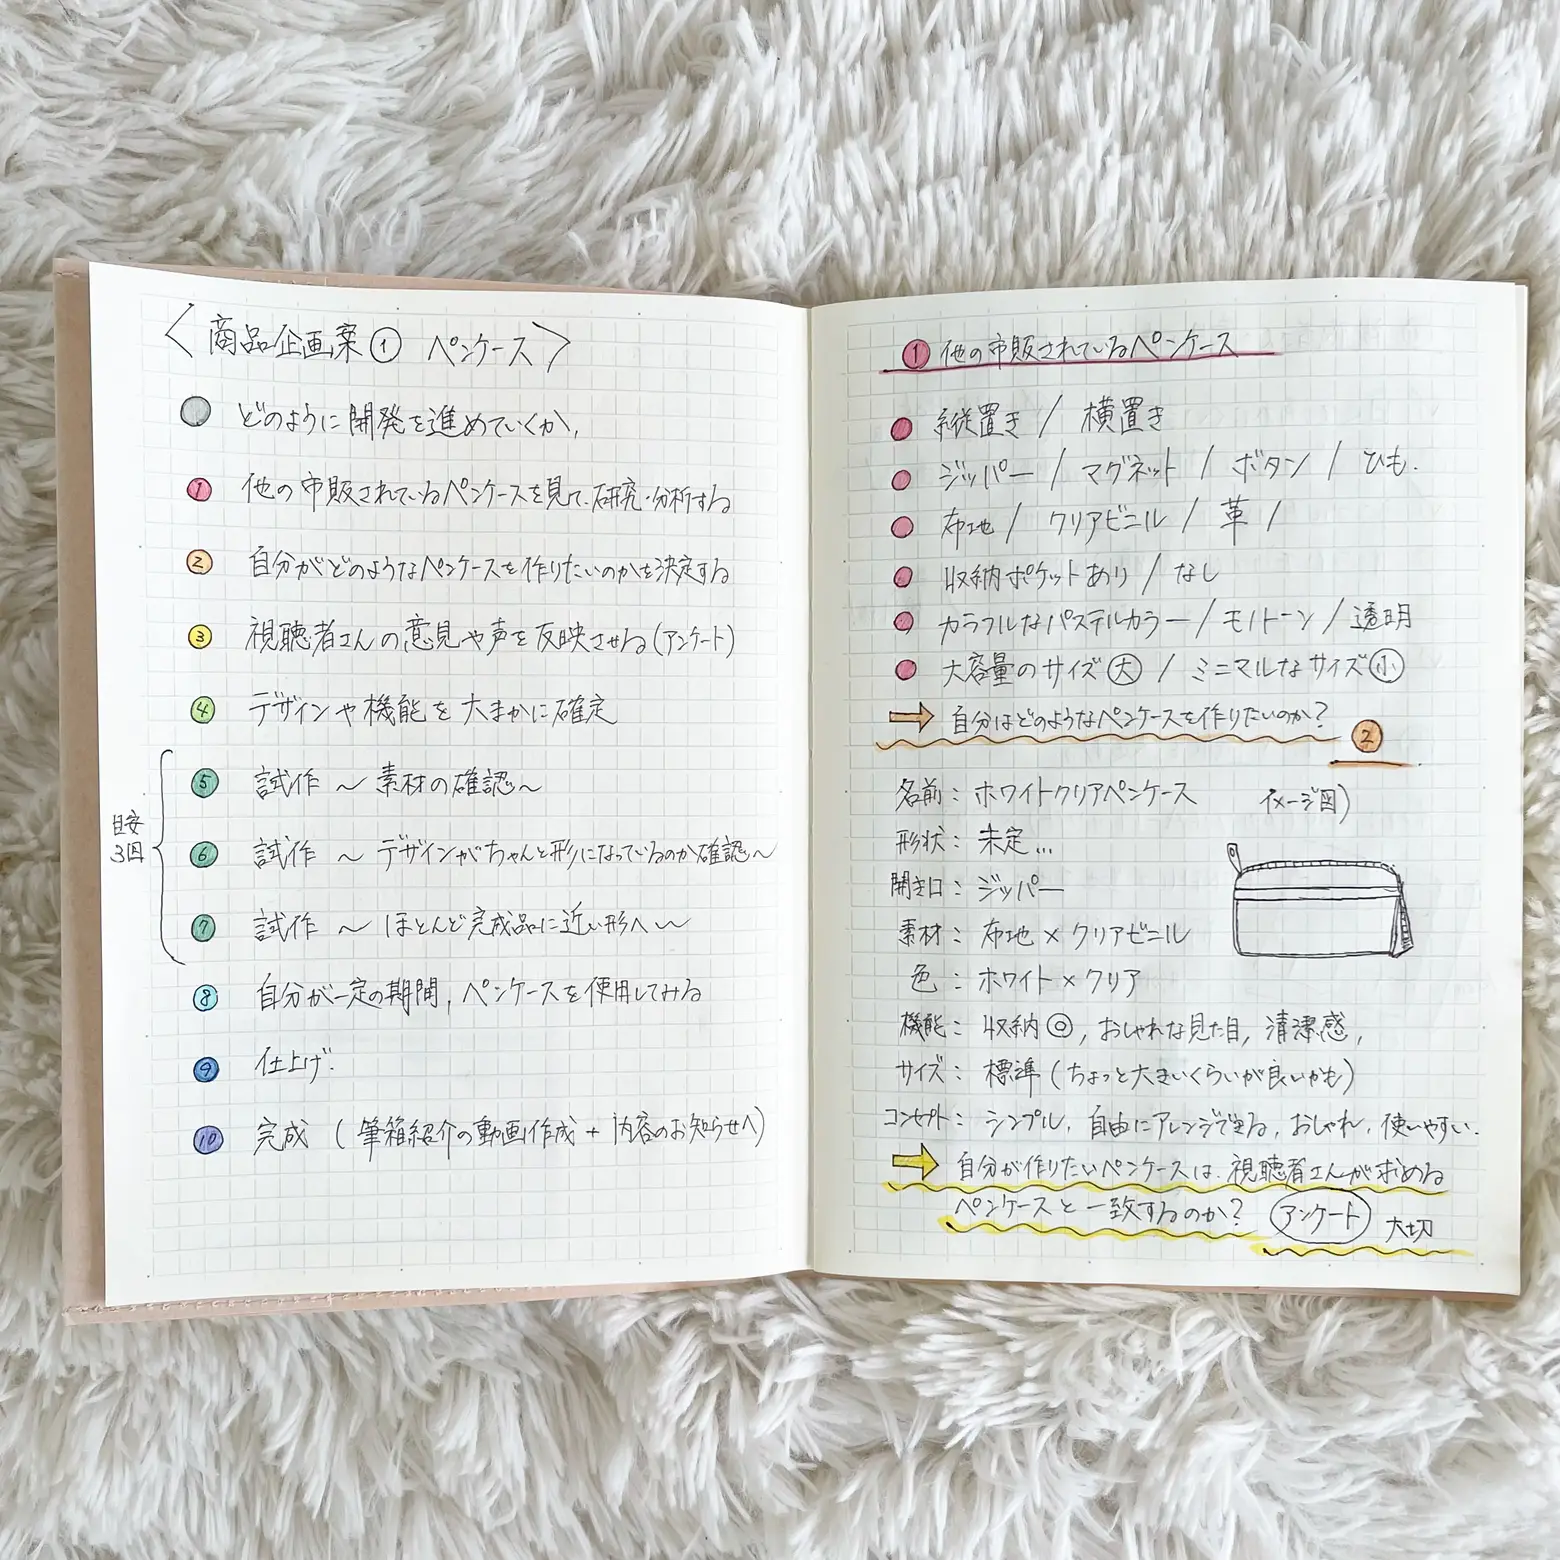 〈商品企画案① ペンケース〉
どのように開発を進めていくか,
1 他の市販されているペンケースを見て、研究・分析する
2 自分がどのようなペンケースを作りたいのかを決定する
3 視聴者さんの意見や声を反映させる(アンケート)
4 デザインや機能を大まかに確定
目安
3回
5 試作 〜 素材の確認〜
6 試作 〜 デザインがちゃんと形になっているのか確認〜
7 試作 〜 ほとんど完成品に近い形へ〜
8 自分が一定の期間, ペンケースを使用してみる
9 仕上げ.
10 完成 (筆箱紹介の動画作成 + 内容のお知らせへ)
1 他の市販されているペンケース
縦置き / 横置き
ジッパー / マグネット / ボタン / ひも.
布地 / クリアビニル / 革 /
収納ポケットあり / なし
カラフルなパステルカラー / モノトーン / 透明
大容量のサイズ大 / ミニマルなサイズ小
⇨ 自分はどのようなペンケースを作りたいのか? 2
名前: ホワイトクリアペンケース イメージ図)
形状: 未定...
開き口: ジッパー
素材: 布地 × クリアビニル
色: ホワイト × クリア
機能: 収納◎, おしゃれな見た目, 清潔感,
サイズ: 標準 (ちょっと大きいくらいが良いかも)
コンセプト: シンプル, 自由にアレンジできる, おしゃれ, 使いやすい.
⇨ 自分が作りたいペンケースは、視聴者さんが求める
ペンケースと一致するのか? アンケート 大切